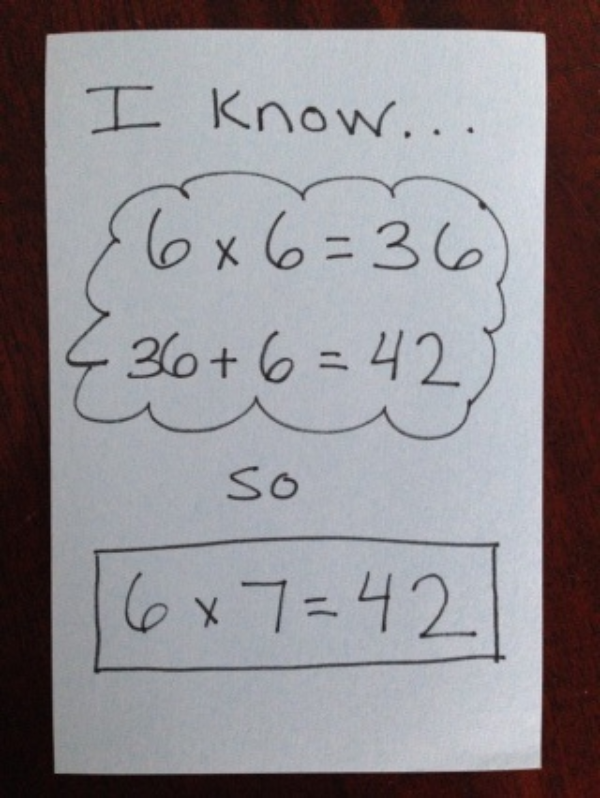 I know...
6 x 6 = 36
36 + 6 = 42
so
6 x 7 = 42